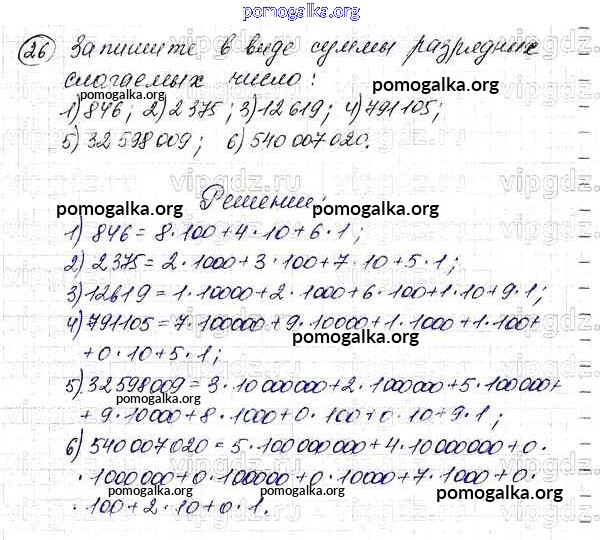 pomogalka.org
26 Запишите в виде суммы разрядных
слагаемых число:
1) 846; 2) 2 375; 3) 12 619; 4) 791 105;
5) 32 598 009; 6) 540 007 020.
pomogalka.org Решение: pomogalka.org
1) 846 = 8·100+4·10+6·1;
2) 2 375 = 2·1000+3·100+7·10+5·1;
3) 12619 = 1·10000+2·1000+6·100+1·10+9·1;
4) 791105 = 7·100000+9·10000+1·1000+1·100+
+0·10+5·1; pomogalka.org
5) 32598009 = 3·10000000+2·1000000+5·100000+
+9·10000+8·1000+0·100+0·10+9·1;
pomogalka.org pomogalka.org
6) 540007020 = 5·100000000+4·10000000+0·
·1000000+0·100000+0·10000+7·1000+0·
pomogalka.org pomogalka.org pomogalka.org
·100+2·10+0·1.